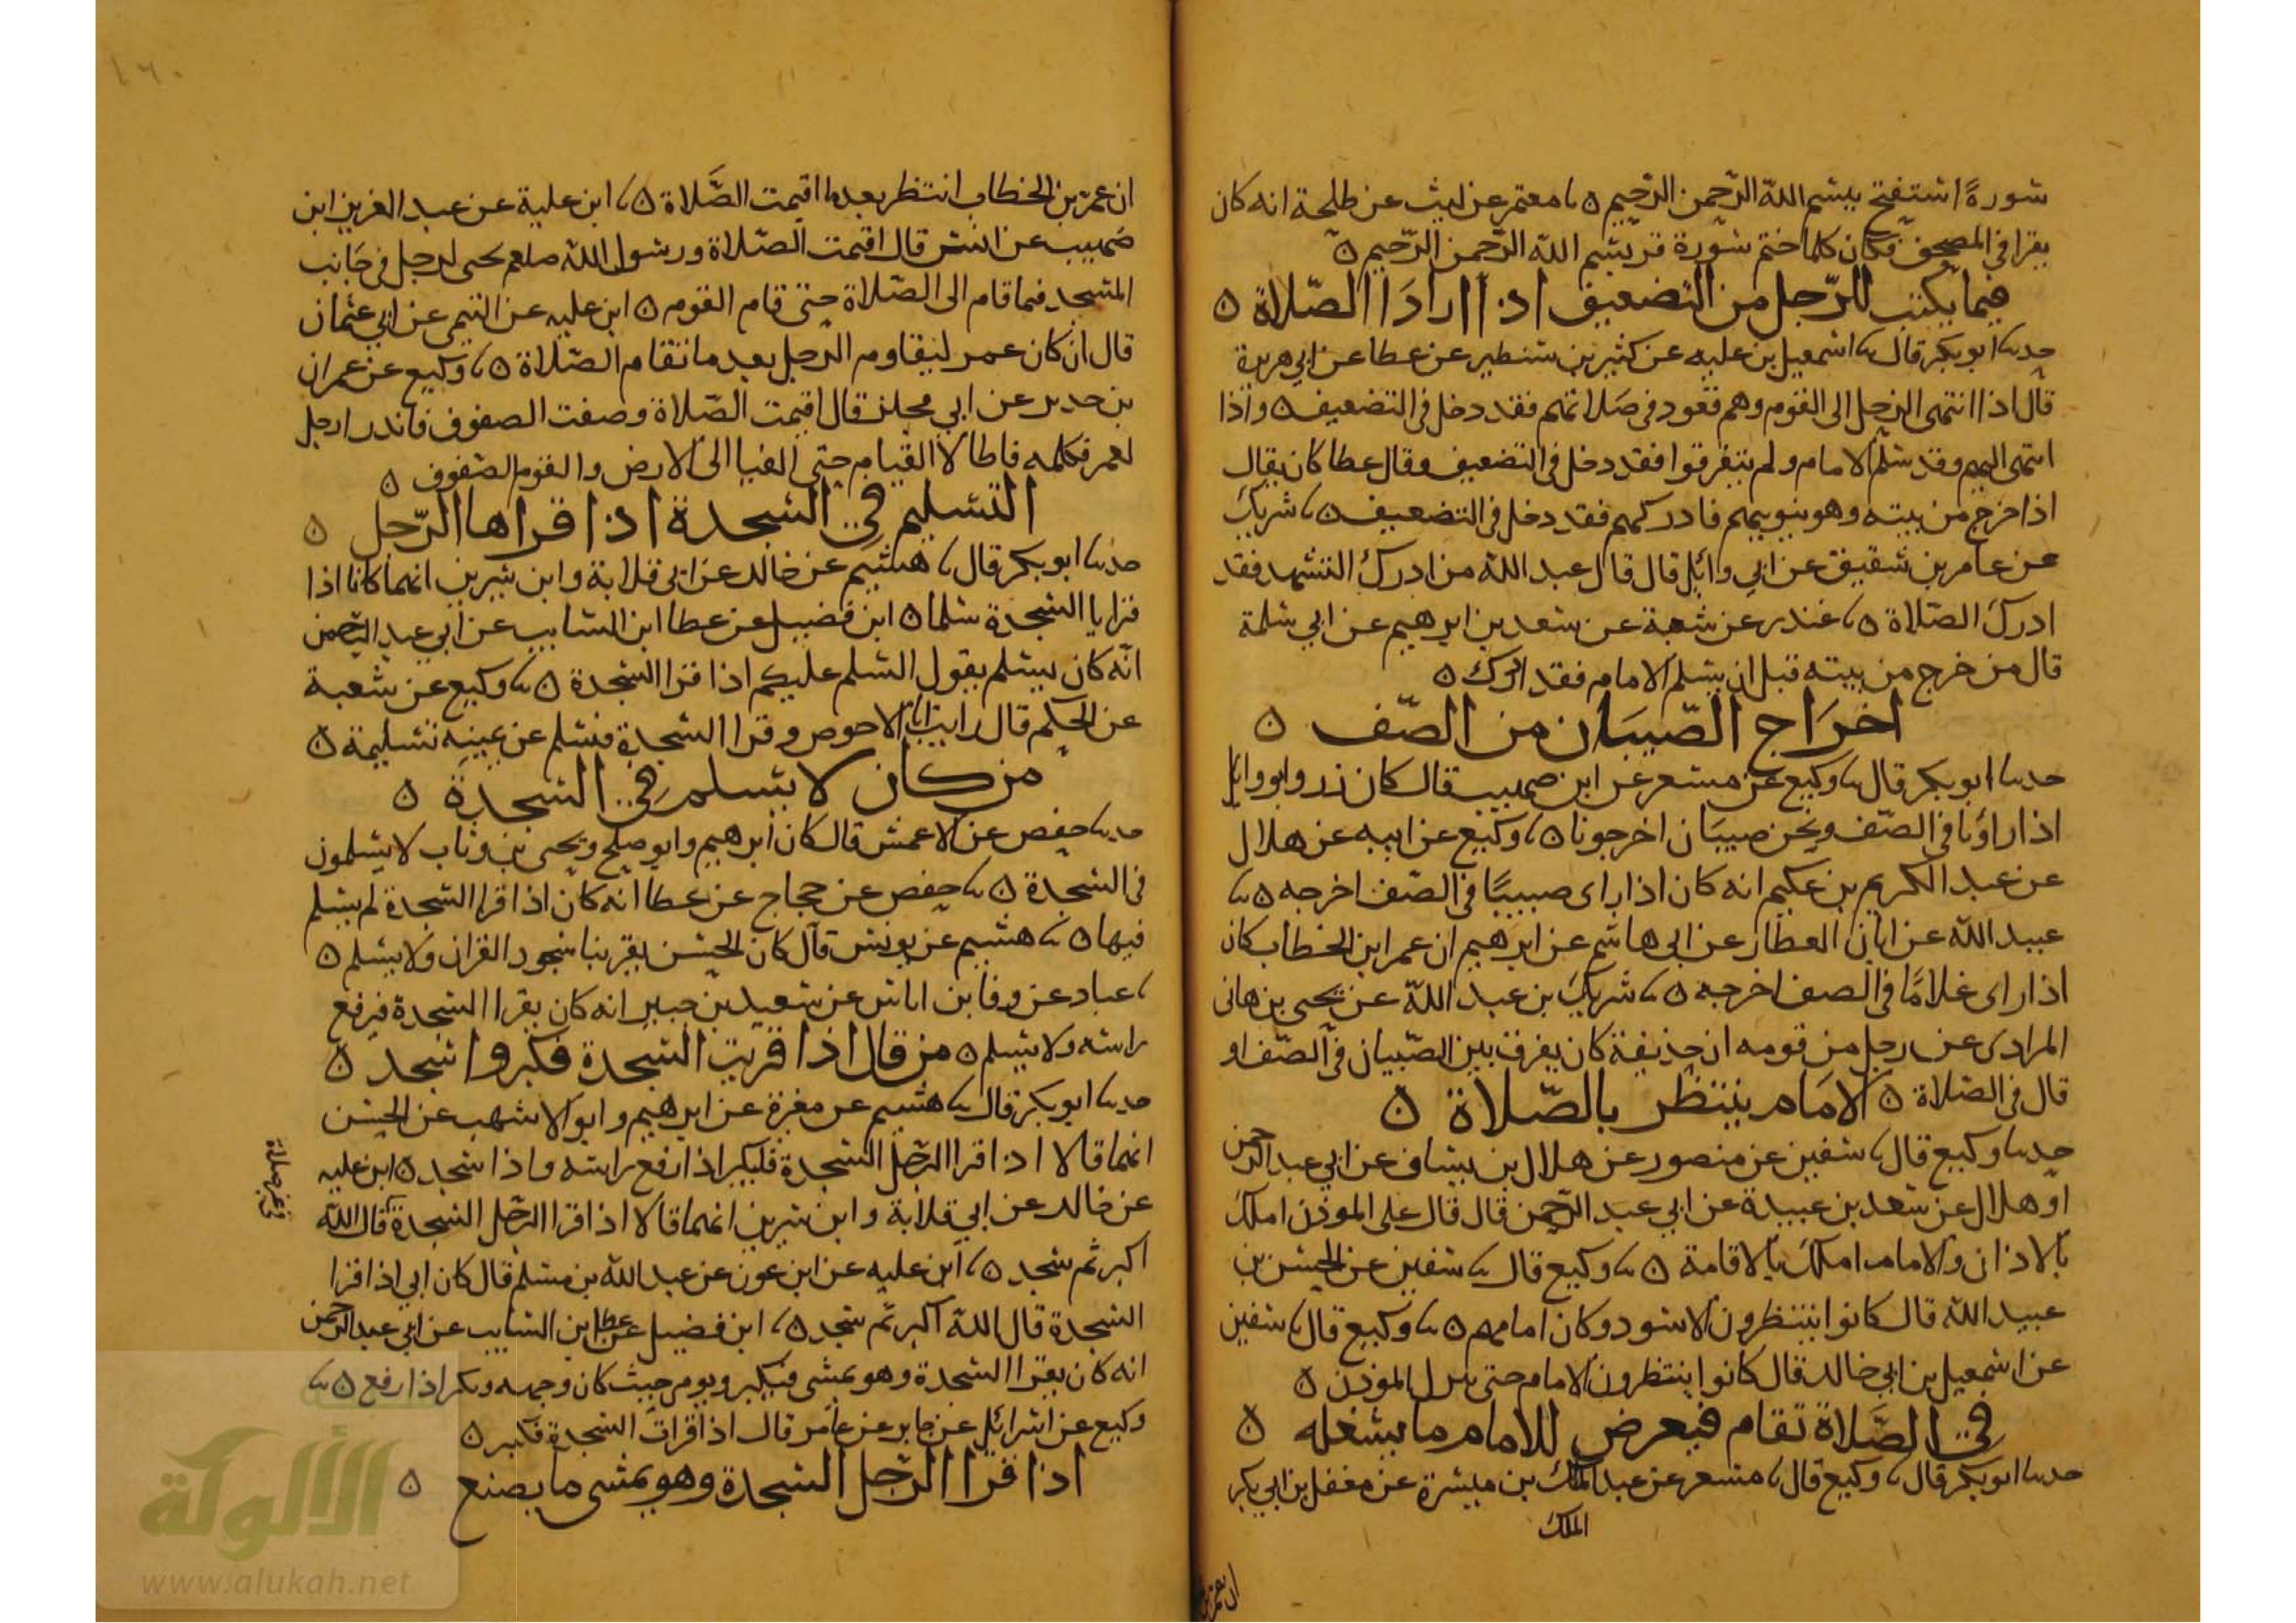 سورة استفتح ببسم الله الرحمن الرحيم ٥ ثنا معتمر عن ليث عن طلحة انه كان
يقرا في المصحف فكان كلما ختم سورة قر بسم الله الرحمن الرحيم ٥
فيما يكتب للرجل من التضعيف اذا اراد الصلاة ٥
حدثنا ابو بكر قال ثنا اسمعيل بن عليه عن كثير بن شنطير عن عطا عن ابي هريرة
قال اذا انتهى الرجل الى القوم وهم قعود في صلاتهم فقد دخل في التضعيف ٥ واذا
انتهى اليهم وقد سلم الامام ولم يتفرقوا فقد دخل في التضعيف وقال عطا كان يقال
اذا خرج من بيته وهو ينويهم فادركهم فقد دخل في التضعيف ٥ ثنا شريك
عن عامر بن شقيق عن ابي وائل قال قال عبد الله من ادرك التشهد فقد
ادرك الصلاة ٥ ثنا غندر عن شعبة عن سعد بن ابرهيم عن ابي سلمة
قال من خرج من بيته قبل ان يسلم الامام فقد ادرك ٥
اخراج الصبيان من الصف ٥
حدثنا ابو بكر قال ثنا وكيع عن مسعر عن ابن صهيب قال كان زر وابو وايل
اذا راونا في الصف ونحن صبيان اخرجونا ٥ ثنا وكيع عن ابيه عن هلال
عن عبد الكريم بن عكيم انه كان اذا راى صبيا في الصف اخرجه ٥ ثنا
عبيد الله عن ابان العطار عن ابي هاشم عن ابرهيم ان عمر ابن الخطاب كان
اذا راى غلاما في الصف اخرجه ٥ ثنا شريك بن عبد الله عن يحيى بن هانى
المرادى عن رجل من قومه ان حذيفة كان يفرق بين الصبيان في الصف او
قال في الصلاة ٥ الامام ينتظر بالصلاة ٥
حدثنا وكيع قال ثنا سفين عن منصور عن هلال بن يساف عن ابي عبد الرحمن
او هلال عن سعد بن عبيدة عن ابي عبد الرحمن قال قال على الموذن املك
بالاذان والامام املك بالاقامة ٥ ثنا وكيع قال ثنا سفين عن الحسن بن
عبيد الله قال كانوا ينتظرون الاسود وكان امامهم ٥ ثنا وكيع قال ثنا سفين
عن اسمعيل بن ابي خالد قال كانوا ينتظرون الامام حتى ينزل الموذن ٥
في الصلاة تقام فيعرض للامام ما يشغله ٥
حدثنا ابو بكر قال ثنا وكيع قال ثنا مسعر عن عبد الملك بن ميسرة عن مغفل بن ابي بكر
الملك
ان عمر بن
١٦٠
ان عمر بن الخطاب انتظر بعدما اقيمت الصلاة ٥ ثنا ابن علية عن عبد العزيز ابن
صهيب عن انس قال اقيمت الصلاة ورسول الله صلعم نجى لرجل في جانب
المسجد فما قام الى الصلاة حتى قام القوم ٥ ابن عليه عن التيمى عن ابي عثمان
قال ان كان عمر ليقاوم الرجل بعد ما تقام الصلاة ٥ ثنا وكيع عن عمران
بن حدير عن ابي مجلز قال اقيمت الصلاة وصفت الصفوف فاندر رجل
لعمر فكلمه فاطالا القيام حتى القيا الى الارض والقوم الصفوف ٥
التسليم في السجدة اذا قراها الرجل ٥
حدثنا ابو بكر قال ثنا هشيم عن خالد عن ابي قلابة وابن سيرين انهما كانا اذا
قرايا السجدة سلما ٥ ابن فضيل عن عطا ابن السايب عن ابي عبد الرحمن
انه كان يسلم يقول السلم عليكم اذا قرا السجدة ٥ ثنا وكيع عن شعبة
عن الحكم قال رايت ابا الاحوص وقرا السجدة فسلم عن يمينه تسليمة ٥
من كان لا يسلم في السجدة ٥
حدثنا حفص عن الاعمش قال كان ابرهيم وابو صلح ويحيى بن وثاب لا يسلمون
في السجدة ٥ ثنا حفص عن حجاج عن عطا انه كان اذا قرا السجدة لم يسلم
فيها ٥ ثنا هشيم عن يونس قال كان الحسن يقر بنا سجود القران ولا يسلم ٥
ثنا عباد عن وفا بن اياس عن سعيد بن جبير انه كان يقرا السجدة فيرفع
راسه ولا يسلم ٥ من قال اذا قريت السجدة فكبر واسجد ٥
حدثنا ابو بكر قال ثنا هشيم عن مغيرة عن ابرهيم وابو الاشهب عن الحسن
انهما قالا اذا قرا الرجل السجدة فليكبر اذا رفع راسه واذا سجد ٥ ابن عليه
عن خالد عن ابي قلابة وابن سيرين انهما قالا اذا قرا الرجل السجدة قال الله
اكبر ثم سجد ٥ ثنا ابن عليه عن ابن عون عن عبد الله بن مسلم قال كان ابي اذا قرا
السجدة قال الله اكبر ثم سجد ٥ ثنا ابن فضيل عن عطا ابن السايب عن ابي عبد الرحمن
انه كان يقرا السجدة وهو يمشى فيكبر ويومى حيث كان وجهه ويكبر اذا رفع ٥ ثنا
وكيع عن اسرائيل عن جابر عن عامر قال اذا قرات السجدة فكبر ٥
اذا قرا الرجل السجدة وهو يمشى ما يصنع ٥
الألوكة
www.alukah.net